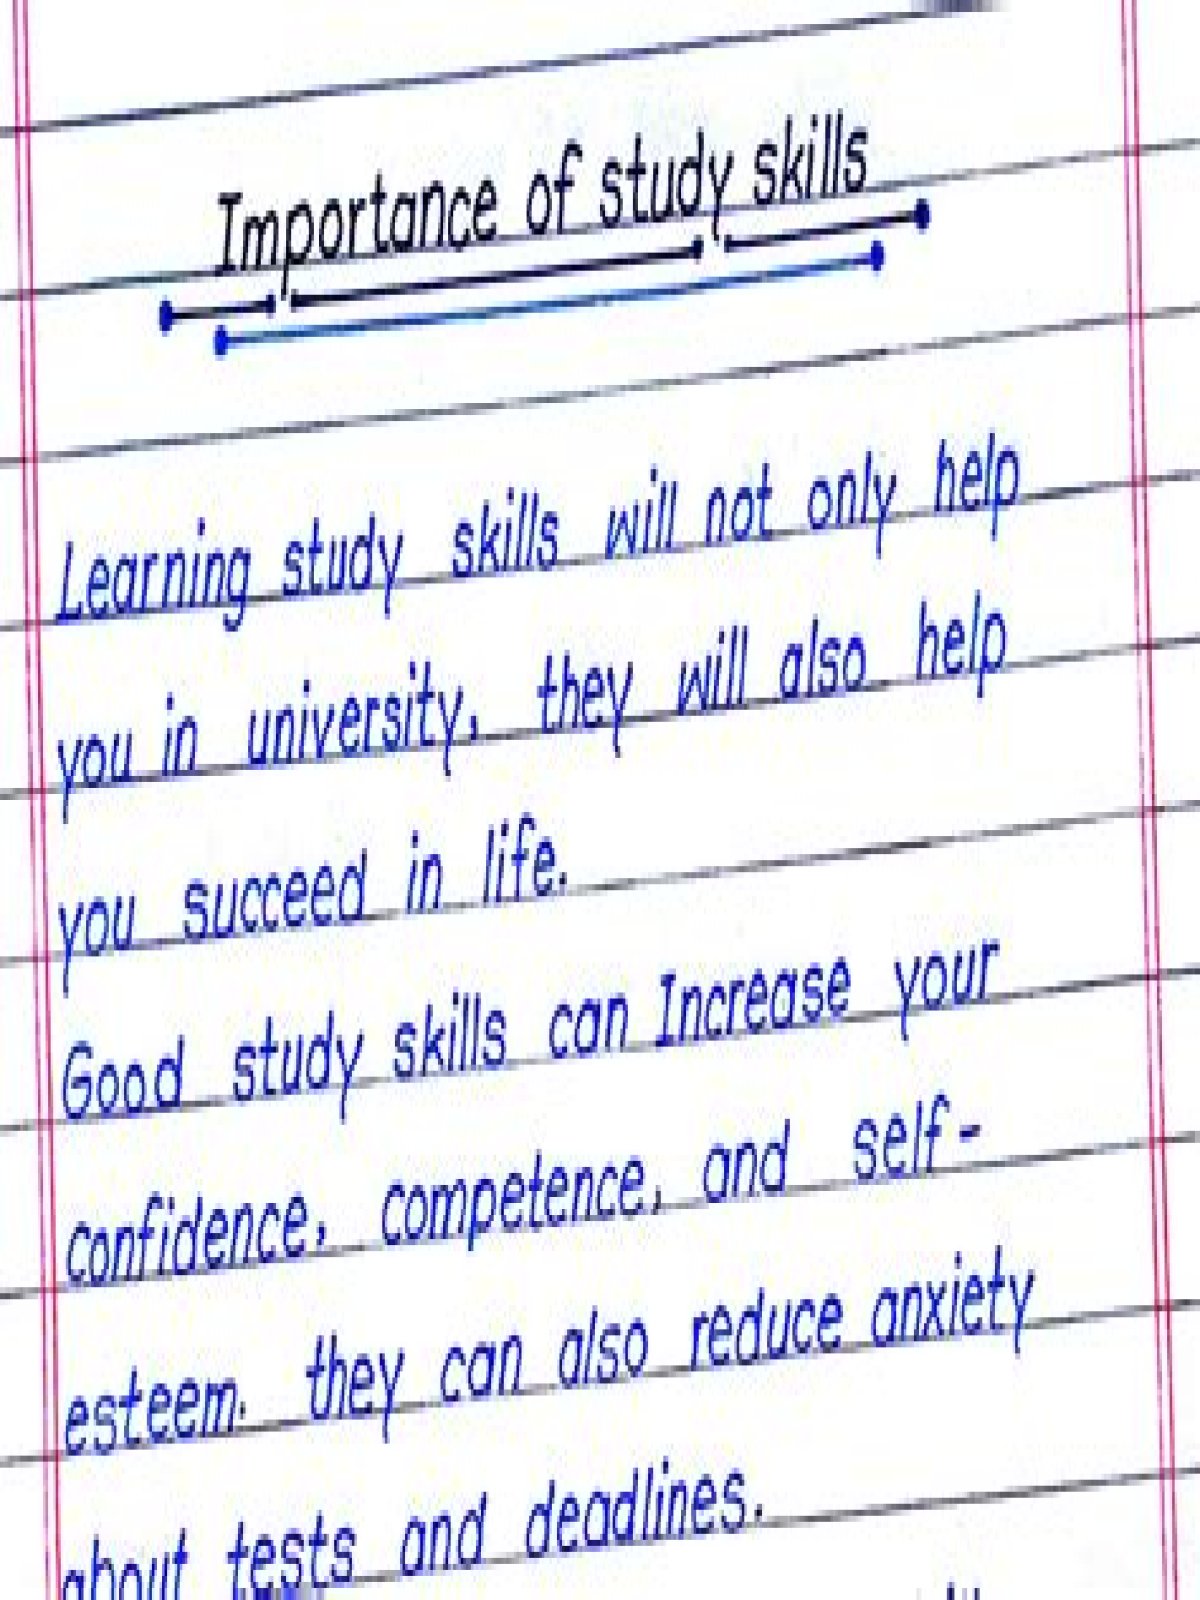 Importance of study skills
Learning study skills will not only help
you in university, they will also help
you succeed in life.
Good study skills can Increase your
confidence, competence, and self-
esteem. they can also reduce anxiety
about tests and deadlines.